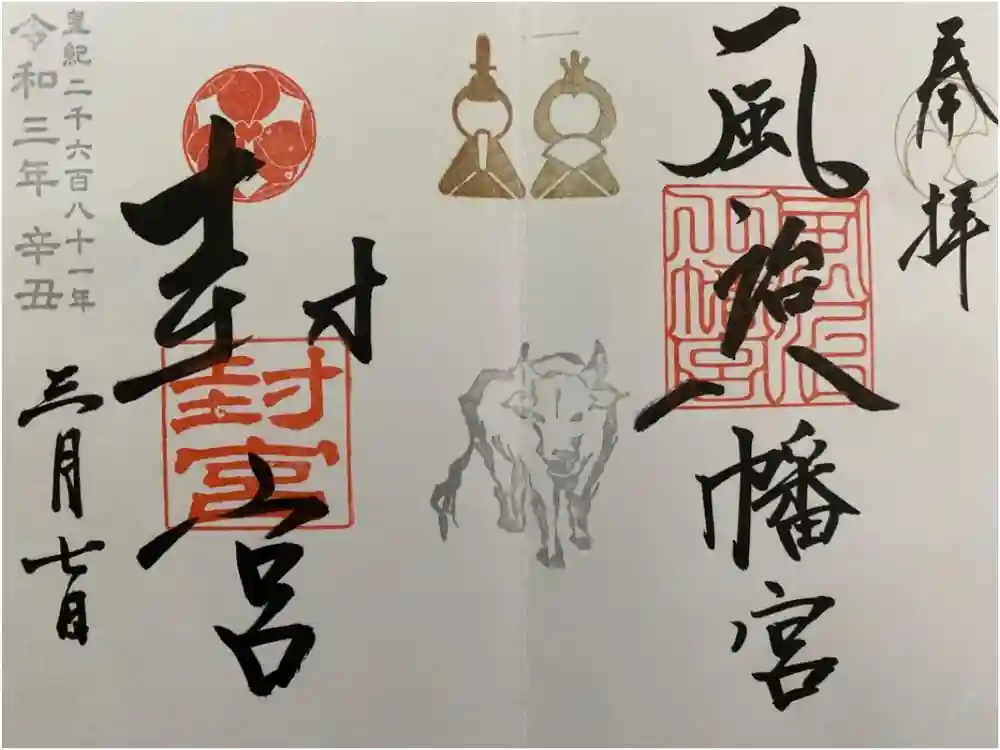 奉拝
風治八幡宮
風治
八幡宮
封宮
封
宮
三月七日
皇紀二千六百八十一年
令和三年辛丑